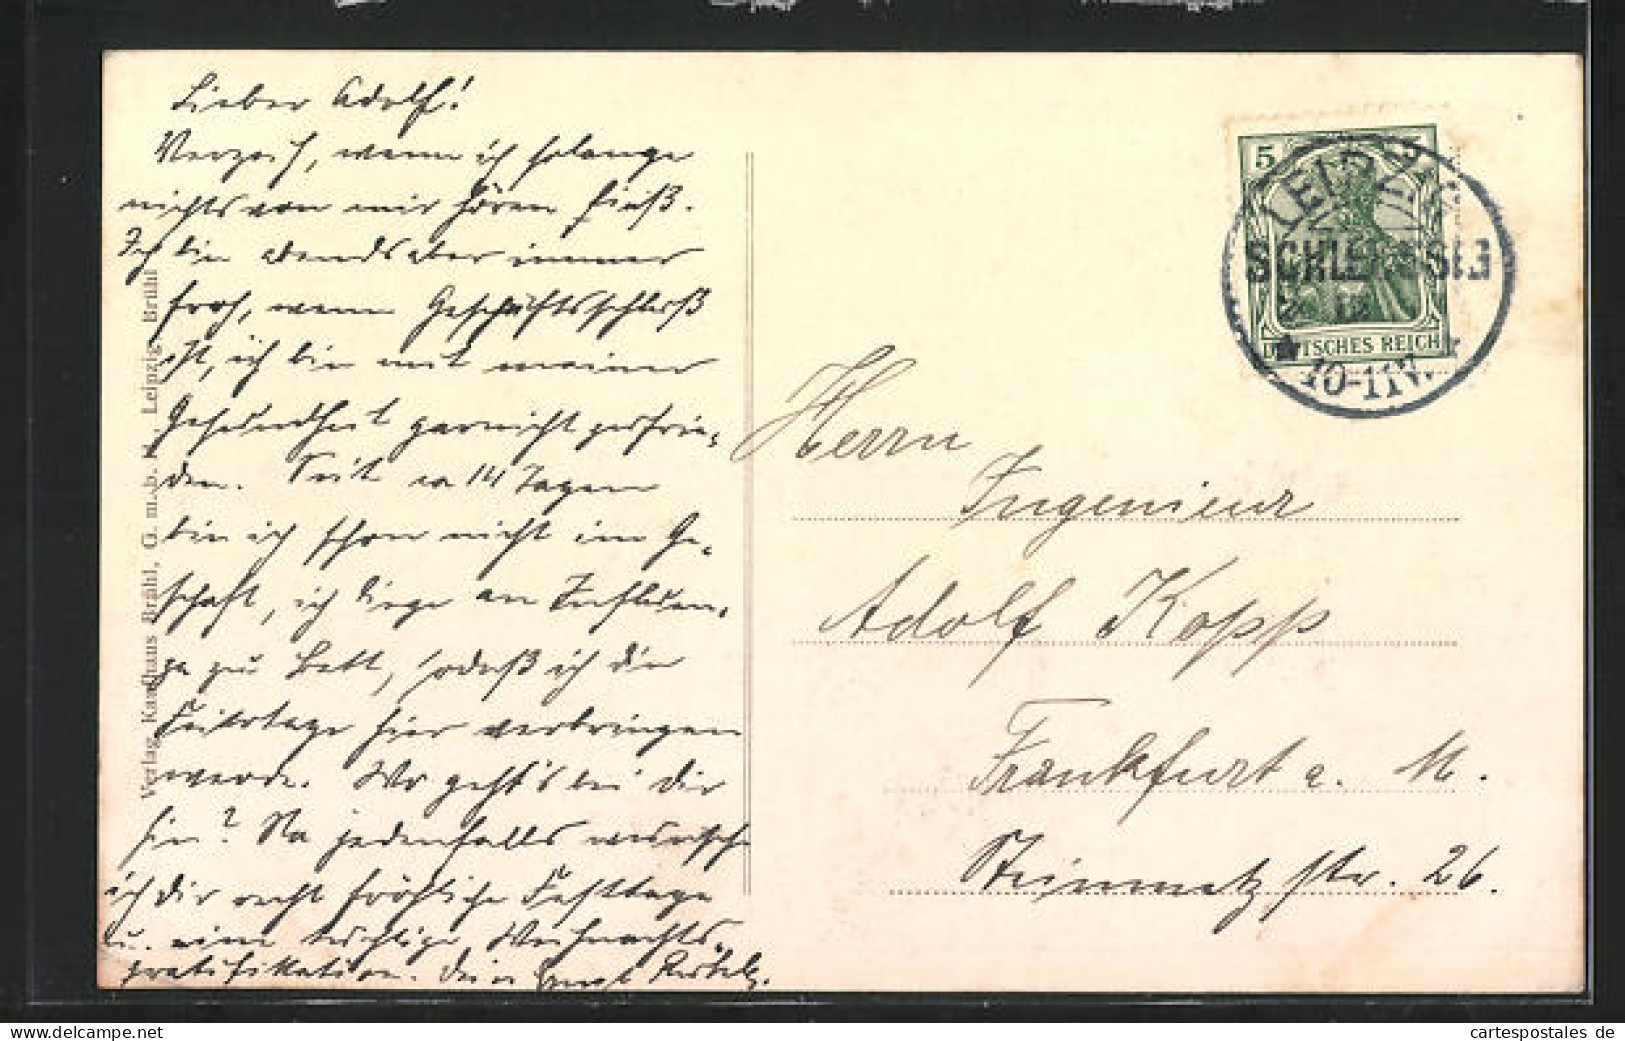 Lieber Adolf!
Verzeih, wenn ich solange
nichts von mir hören ließ.
Ich bin abends aber immer
froh, wenn Geschäftsschluß
ist, ich bin mit meiner
Gesundheit garnicht zufrie-
den. Seit ca 14 Tagen
bin ich schon nicht im Ge-
schäft, ich liege an Influen-
za zu Bett, sodaß ich die
Feiertage hier verbringen
werde. Wo geht's bei Dir
hin? Na jedenfalls wünsche
ich Dir recht fröhliche Festtage
u. eine tüchtige Weihnachts-
gratifikation. Dein Ernst
Verlag Kaufhaus Brühl, G. m. b. H. Leipzig Brühl
5 5
DEUTSCHES REICH
LEIPZIG
SCHLEUSSIG
10-11V.
Herrn
Ingenieur
Adolf Kopp
Frankfurt a. M.
Steinmetzstr. 26.
cartespostales de